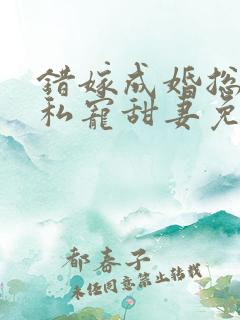 错嫁成婚总
私宠甜妻免
都春子
未经同意禁止转载